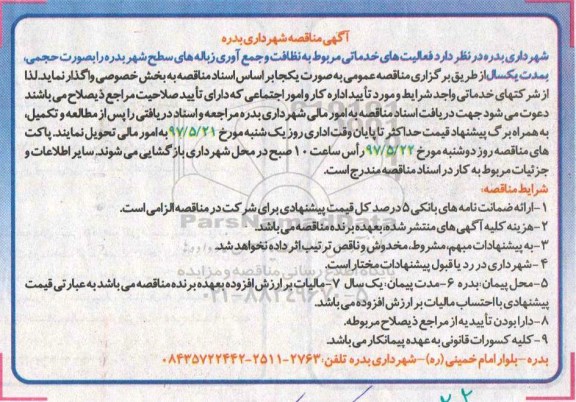 آگهی مناقصه شهرداری بدره
شهرداری بدره در نظر دارد فعالیت های خدماتی مربوط به نظافت و جمع آوری زباله های سطح شهر بدره را بصورت حجمی،
بمدت یکسال از طریق برگزاری مناقصه عمومی به صورت یکجا بر اساس اسناد مناقصه به بخش خصوصی واگذار نماید. لذا
از شرکتهای خدماتی واجد شرایط و مورد تأیید اداره کار و امور اجتماعی که دارای تأیید صلاحیت مراجع ذیصلاح می باشند
دعوت می شود جهت دریافت اسناد مناقصه به امور مالی شهرداری بدره مراجعه و اسناد دریافتی را پس از مطالعه و تکمیل،
به همراه برگ پیشنهاد قیمت حداکثر تا پایان وقت اداری روز یک شنبه مورخ ۹۷/۵/۲۱ به امور مالی تحویل نمایند. پاکت
های مناقصه روز دوشنبه مورخ ۹۷/۵/۲۲ رأس ساعت ۱۰ صبح در محل شهرداری بازگشایی می شوند. سایر اطلاعات و
جزئیات مربوط به کار در اسناد مناقصه مندرج است.
شرایط مناقصه:
۱-ارائه ضمانت نامه های بانکی ۵ درصد کل قیمت پیشنهادی برای شرکت در مناقصه الزامی است.
۲-هزینه کلیه آگهی های منتشر شده، بعهده برنده مناقصه می باشد.
۳-به پیشنهادات مبهم، مشروط، مخدوش و ناقص ترتیب اثر داده نخواهد شد.
۴-شهرداری در رد یا قبول پیشنهادات مختار است.
۵-محل پیمان: بدره ۶-مدت پیمان: یک سال ۷-مالیات بر ارزش افزوده بعهده برنده مناقصه می باشد به عبارتی قیمت
پیشنهادی با احتساب مالیات بر ارزش افزوده می باشد.
۸-دارا بودن تأییدیه از مراجع ذیصلاح مربوطه.
۹-کلیه کسورات قانونی به عهده پیمانکار می باشد.
بدره-بلوار امام خمینی (ره)-شهرداری بدره تلفن: ۲۷۶۳-۲۵۱۱-۰۸۴۳۵۷۲۲۴۴۲